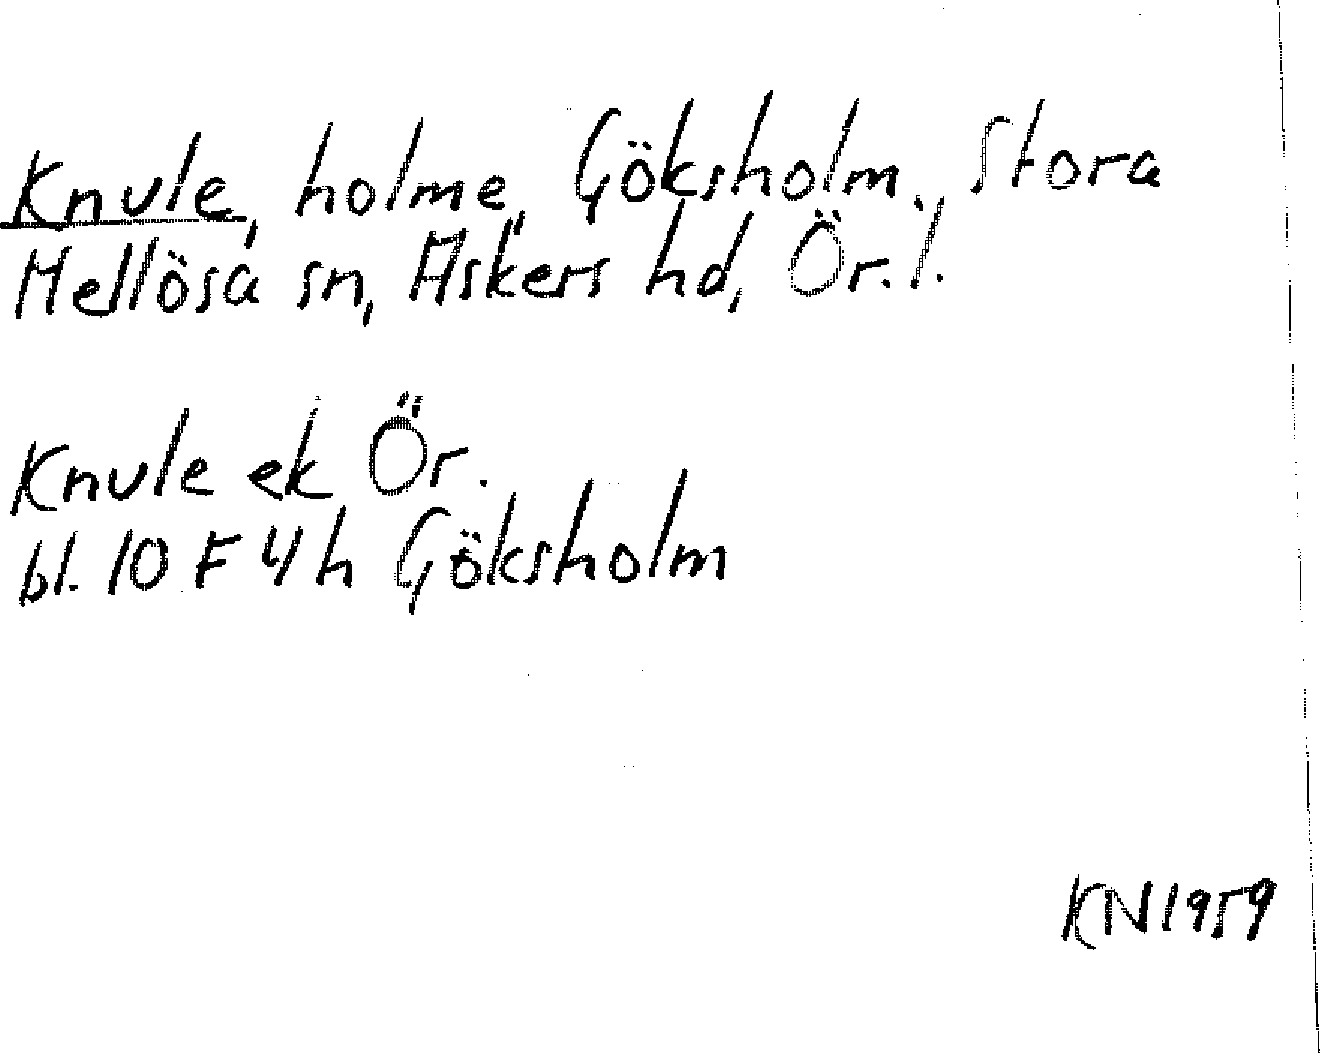 Knule, holme, Göksholm, Stora
Mellösa sn, Askers hd, Ör. l.
Knule ek Ör.
bl. 10 F 4 h Göksholm
KN 1959